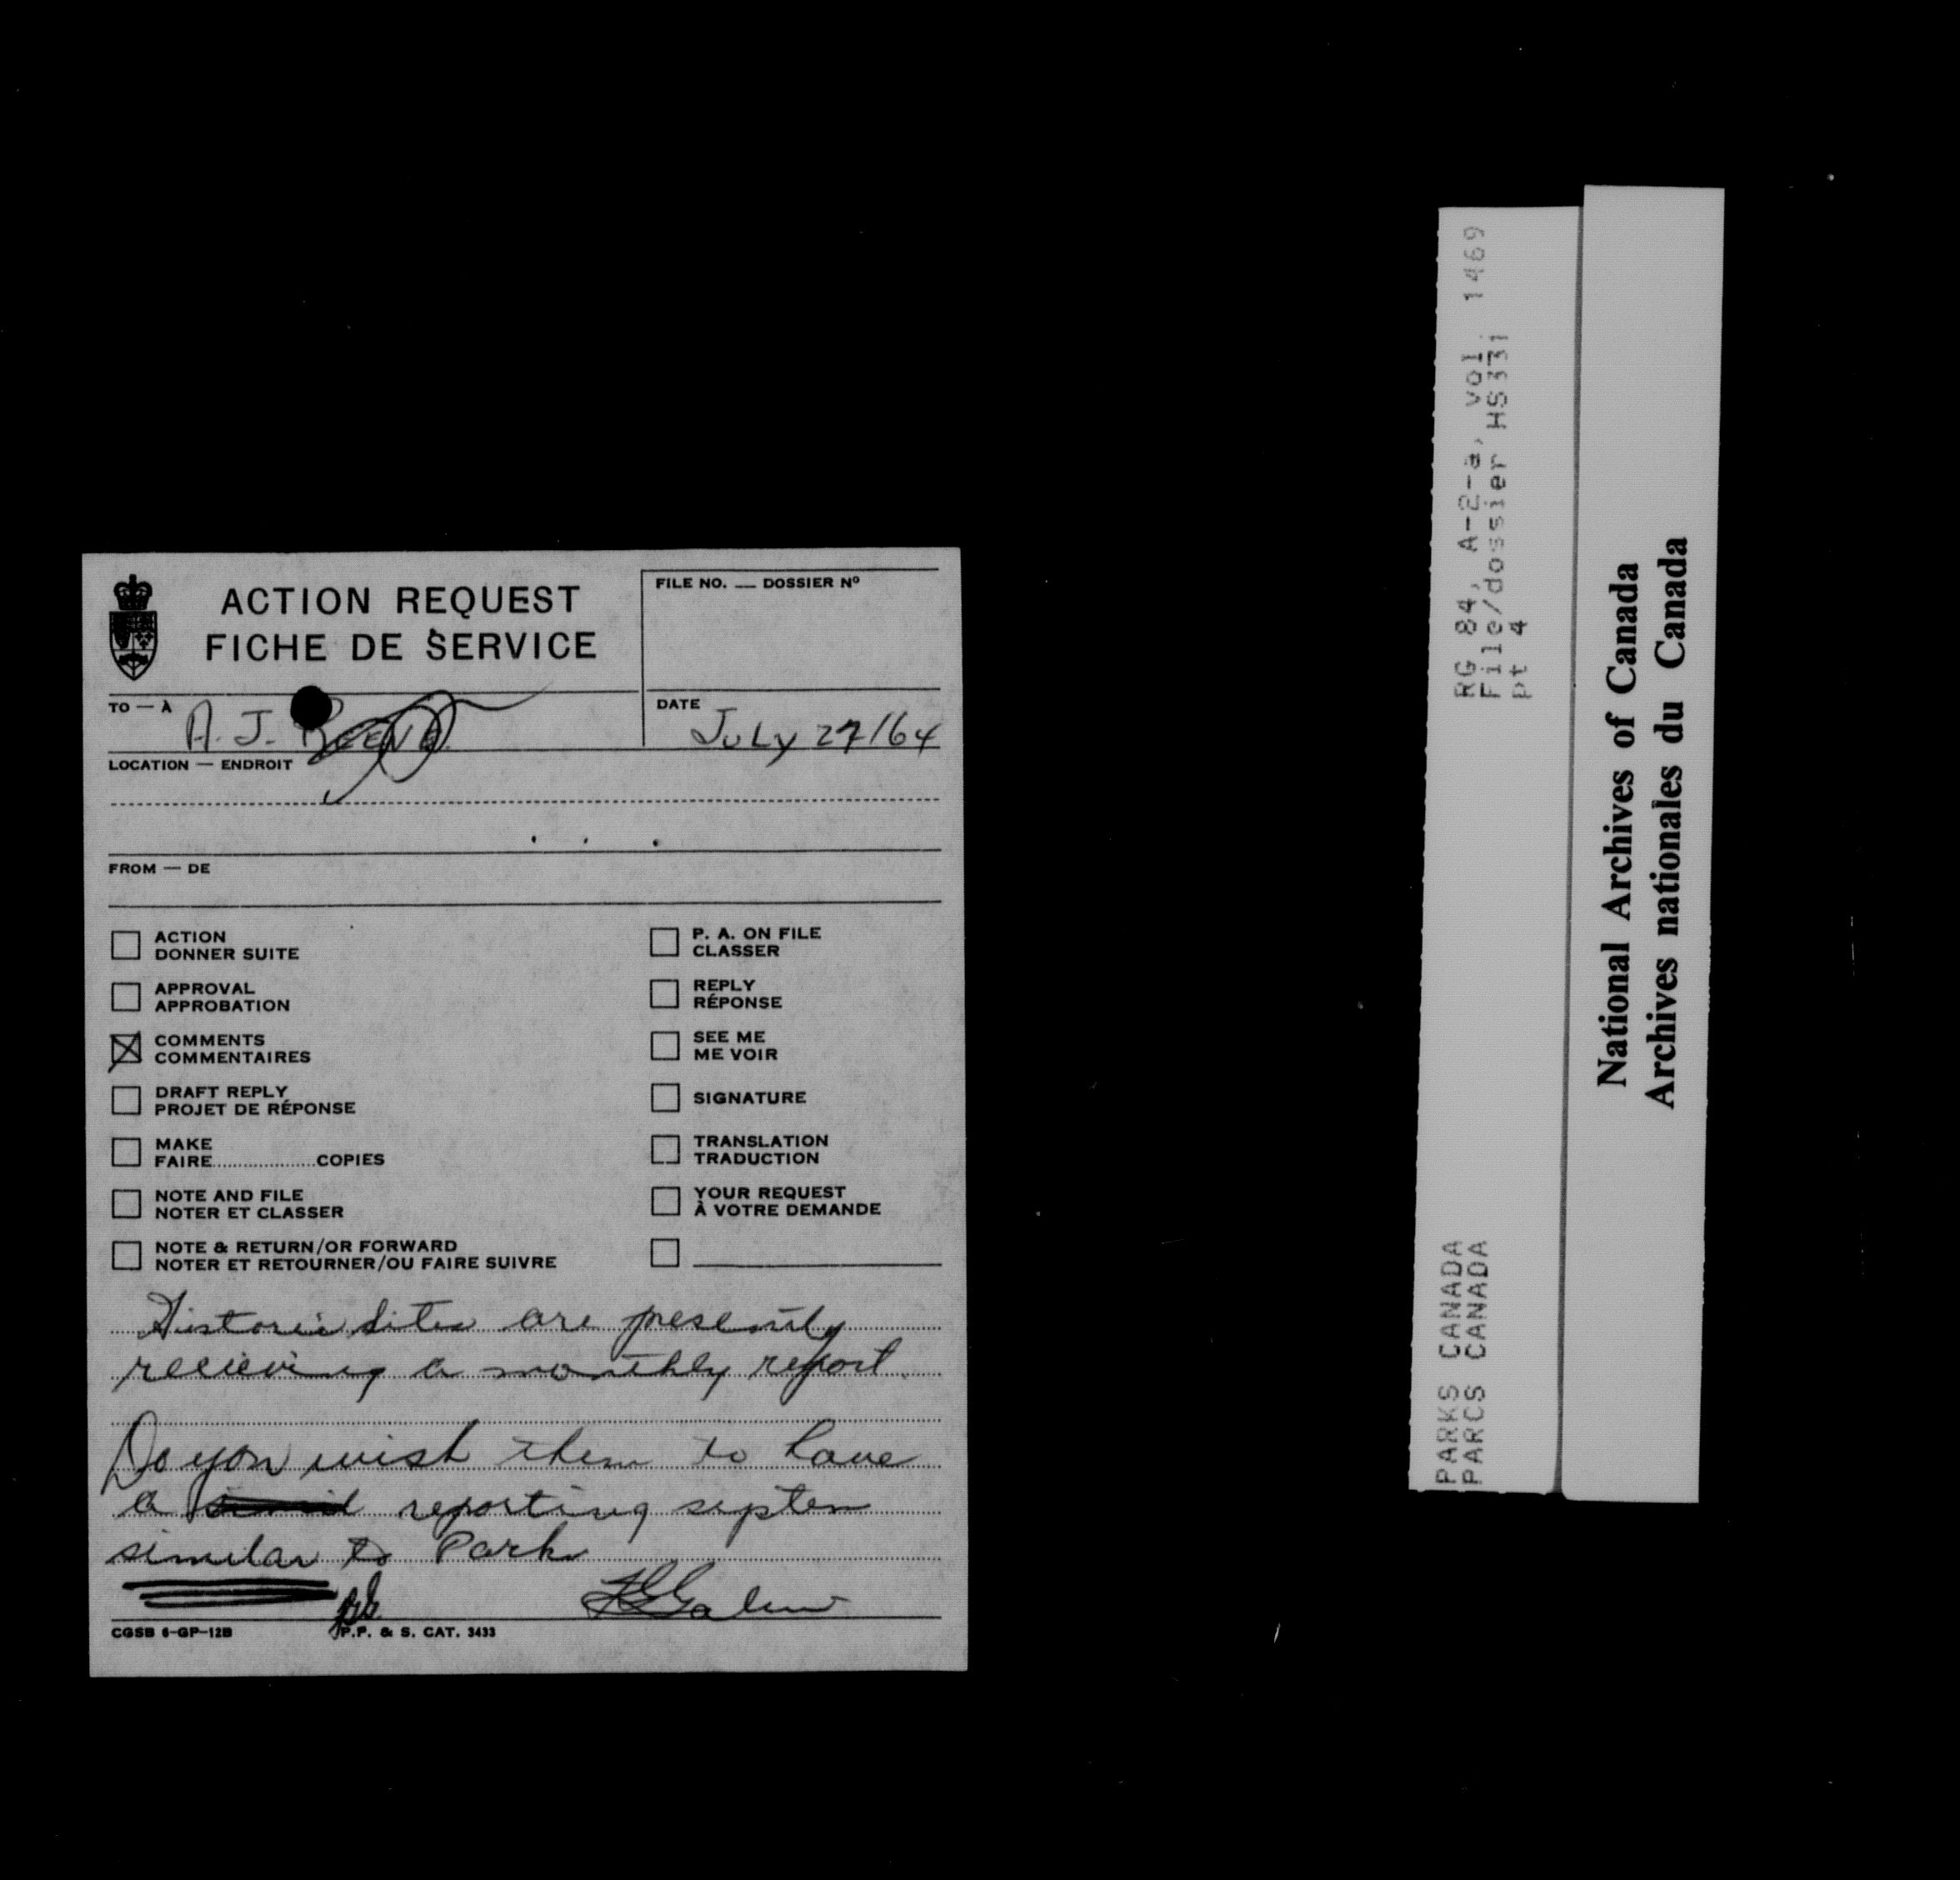 ACTION REQUEST
FICHE DE SERVICE
FILE NO. — DOSSIER Nº
TO — À A. J.
DATE July 27/64
LOCATION — ENDROIT
FROM — DE
ACTION
DONNER SUITE
APPROVAL
APPROBATION
COMMENTS
COMMENTAIRES
DRAFT REPLY
PROJET DE RÉPONSE
MAKE
FAIRE....................COPIES
NOTE AND FILE
NOTER ET CLASSER
NOTE & RETURN/OR FORWARD
NOTER ET RETOURNER/OU FAIRE SUIVRE
P. A. ON FILE
CLASSER
REPLY
RÉPONSE
SEE ME
ME VOIR
SIGNATURE
TRANSLATION
TRADUCTION
YOUR REQUEST
À VOTRE DEMANDE
Historic Sites are presently
recieving a monthly report.
Do you wish them to have
a reporting system
similar to Parks
CGSB 6-GP-12B
P.P. & S. CAT. 3433
RG 84, A-2-a, vol. 1469
File/dossier HS331
pt 4
PARKS CANADA
PARCS CANADA
National Archives of Canada
Archives nationales du Canada